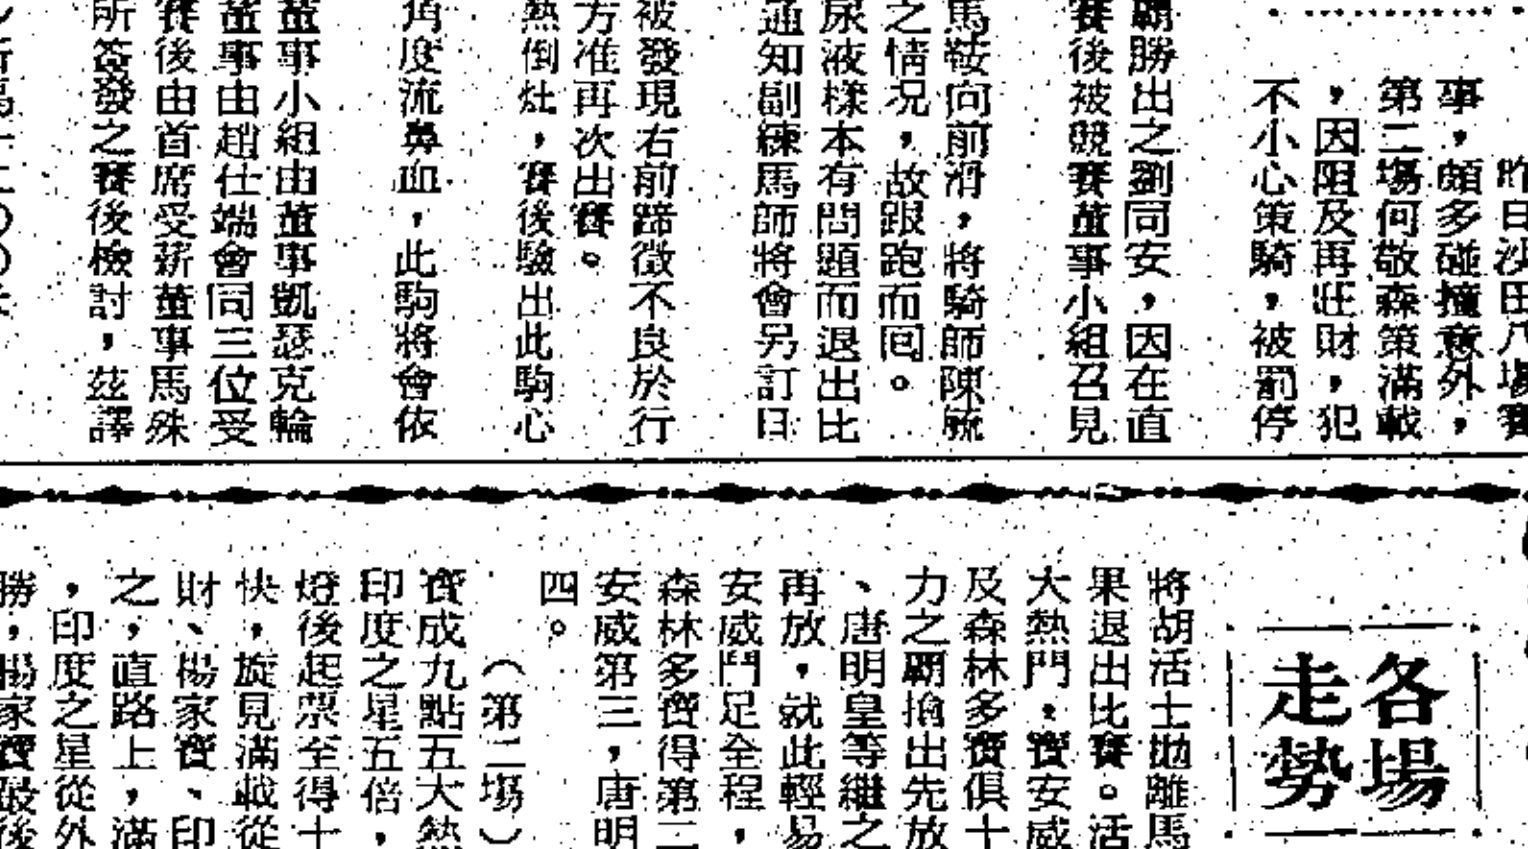 昨日沙田八場賽
事，頗多碰撞意外，
第二場何敬森策滿載
，因阻及再旺財，犯
不小心策騎，被罰停
霸勝出之劉同安，因在直
賽後被競賽董事小組召見
馬鞍向前滑，將騎師陳毓
之情况，故跟跑而回。
尿液樣本有問題而退出比
通知副練馬師將會另訂日
被發現右前蹄徵不良於行
方准再次出賽。
熱倒灶，賽後驗出此駒心
角度流鼻血，此駒將會依
董事小組由董事凱瑟克輪
董事由趙仕端會同三位受
賽後由首席受薪董事馬殊
所簽發之賽後檢討，茲譯
各場
走勢
將胡活士拋離馬
果退出比賽。活
大熱門，寶安威
及森林多寶俱十
力之霸搶出先放
、唐明皇等繼之
再放，就此輕易
安威鬥足全程，
森林多寶得第二
安威第三，唐明
四。
（第二場）
寶成九點五大熱
印度之星五倍，
燈後起票全得十
快，旋見滿載從
財、楊家寶、印
之，直路上，滿
，印度之星從外
勝，楊家寶最後